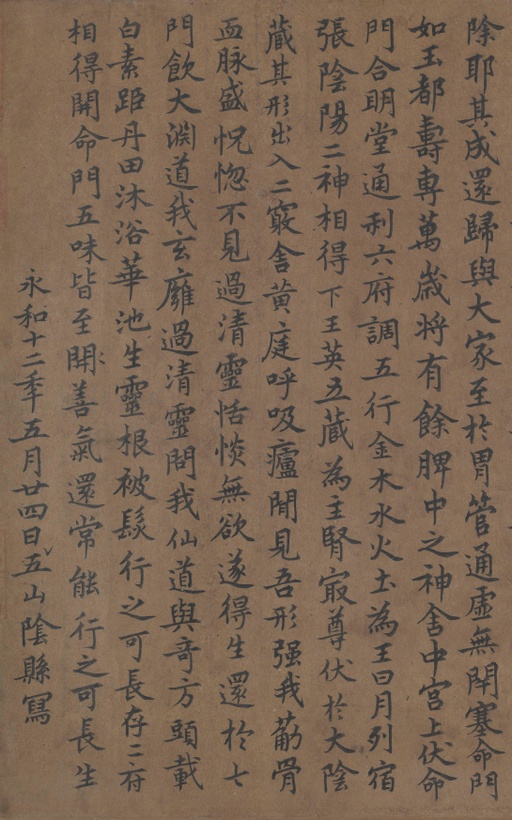 除耶其成還歸與大家至於胃管通虛無閇塞命門
如玉都壽專萬歲將有餘脾中之神舍中宮上伏命
門合明堂通利六府調五行金木水火土為王日月列宿
張陰陽二神相得下王英五藏為主腎㝡尊伏於大陰
藏其形出入二竅舍黃庭呼吸廬閒見吾形强我葋骨
血脉盛怳惚不見過清靈恬惔無欲遂得生還於七
門飲大淵道我玄癰過清靈問我仙道與奇方頭載
白素距丹田沐浴華池生靈根被髮行之可長存二府
相得開命門五味皆至開善氣還常能行之可長生
永和十二年五月廿四日五山陰縣寫